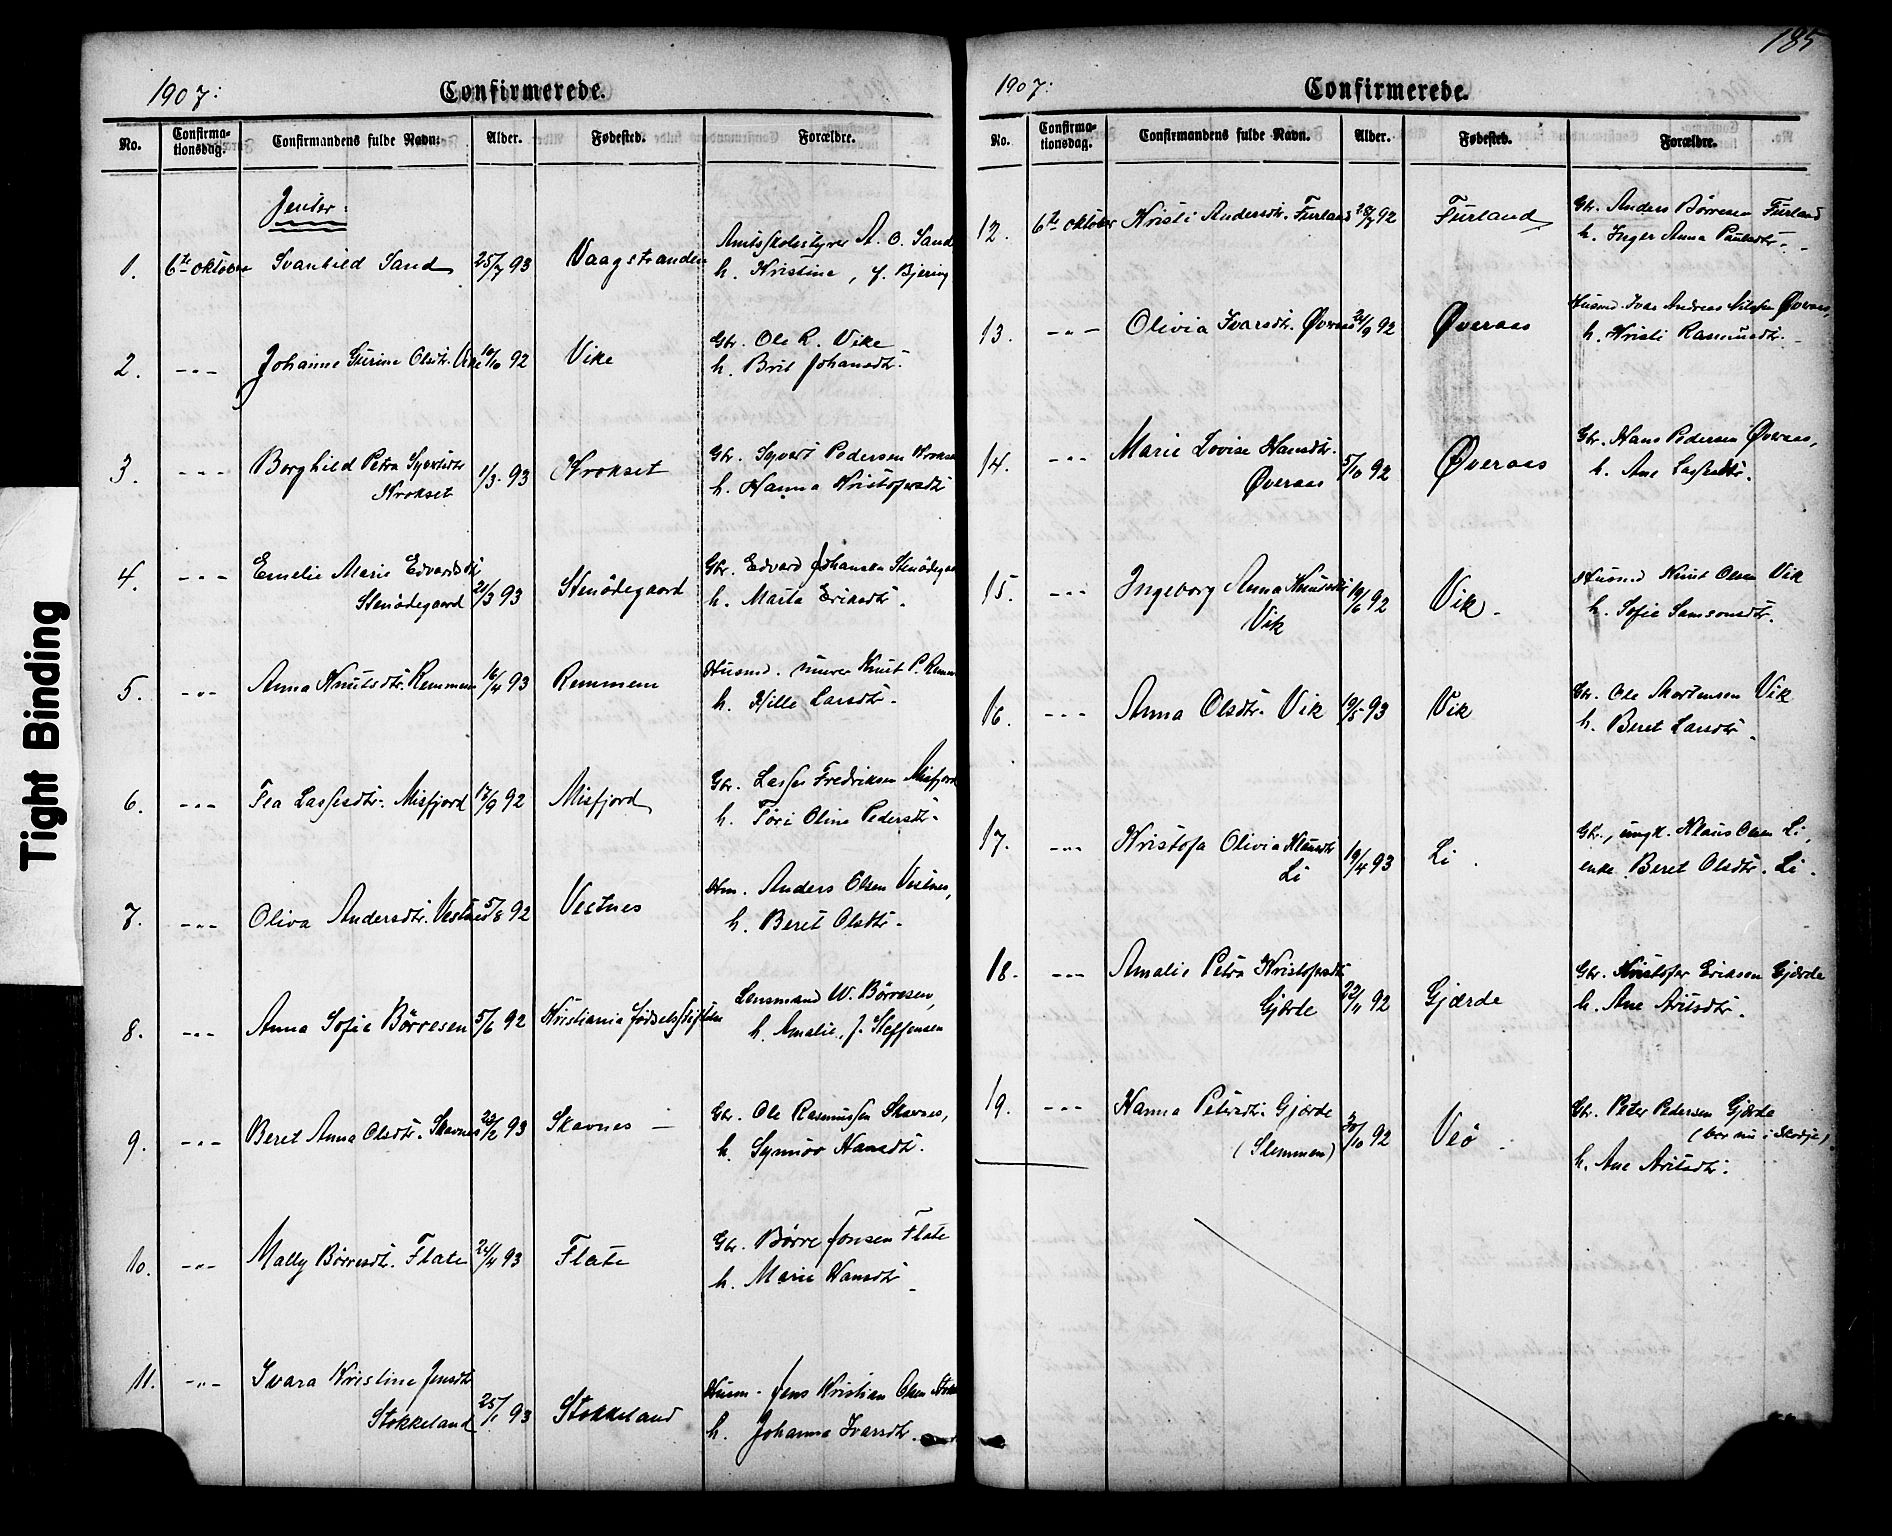 Tight Binding
1907:
Confirmerede.
No. Confirma-tionsdag. Confirmandens fulde Navn: Alder. Fødested. Forældre.
Jenter:
1. 6te oktober Svanhild Sand 25/7 93 Vaagstranden Amtsskolestyrer A. O. Sand
h. Kristine, f. Bjering
2. -"- Johanne Sterine Olsdtr. Vike 10/10 92 Vike Gbr. Ole R. Vike
h. Brit Johansdtr.
3. -"- Borghild Petra Syvertsdtr 1/3. 93 Krokset Gbr. Syvert Pedersen
Krokset h. Hanna Kristofersdtr
4. -"- Emelie Marie Edvardsdtr 21/3 93 Stenødegaard Gbr. Edvard Johansen
Stenødegaard h. Marta Eriksdtr.
5. -"- Anna Knutsdtr. Remmem 16/4 93 Remmem Husmd. murer Knut P.
h. Kille Larsdtr.
6. -"- Tea Lassesdtr. Misfjord 17/9 92 Misfjord Gbr. Lasses Fredriksen Misfjord
h. Tori Oline Pedersdtr.
7. -"- Oliva Andersdtr. Vestnes 5/8 92 Vestnes Hm. Anders Olsen Vestnes,
h. Beret Olsdtr.
8. -"- Anna Sofie Børresen 5/6 92 Kristiania fødselsstiftelse Lensmand W. Børresen,
h. Amalie, f. Steffensen
9. -"- Beret Anna Olsdtr. Skavnes 22/2 93 Skavnes Gbr. Ole Rasmussen Skavnes,
h. Synnøv Hansdtr.
10. -"- Mally Børresdtr. Flate 24/4 93 Flate Gbr. Børre Jonsen Flate
h. Marie Hansdtr
11. -"- Ivara Kristine Jensdtr 25/1 93 Stokkeland Husm. Jens Kristian Olsen
Stokkeland h. Johanna Ivarsdtr.
185
1907:
Confirmerede.
No. Confirma-tionsdag. Confirmandens fulde Navn. Alder. Fødested. Forældre.
12. 6te oktober Kristi Andersdtr. Furland 28/7 92 Furland Gbr. Anders Børresen Furland
h. Inger Anna Paulsdtr.
13. -"- Olivia Ivarsdtr. Øveraas 24/9 92 Øveraas Husmd. Ivar Andreas Nilssen Øveraas,
h. Kristi Rasmusdtr.
14. -"- Marie Lovise Hansdtr. 5/10 92 Øveraas Gbr. Hans Pedersen Øveraas,
Øveraas h. Ane Lassesdtr.
15. -"- Ingeborg Anna Knutsdtr 19/6 92 Vik. Husmd Knut Olsen Vik
Vik h. Sofie Samsonsdtr.
16. -"- Anna Olsdtr. Vik 19/5 93 Vik Gbr. Ole Mortensen Vik
h. Beret Larsdtr.
17. -"- Kristofa Olivia Klausdtr 19/4 93 Li. Gbr., ungk. Klaus Olsen Li,
Li enke Beret Olsdtr. Li.
18. -"- Amalie Petra Kristofersdtr 22/11 92 Gjærde Gbr. Kristofer Eriksen Gjærde
Gjærde h. Ane Aritsdtr.
19. -"- Hanna Petersdtr. Gjærde 30/10 92 Veø Gbr. Peter Pedersen Gjærde
(Slemmem) (bor nu i Skodje)
h. Ane Aritsdtr.